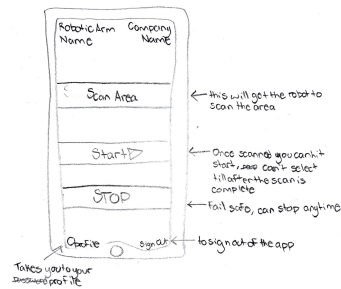 Robotic Arm Company
Name Name
Scan Area
this will get the robot to
scan the area
Start
Once scanned you can hit
start, can't select
till after the scan is
complete
STOP
Fail safe, can stop anytime
Profile sign out
to sign out of the app
Takes you to your
profile